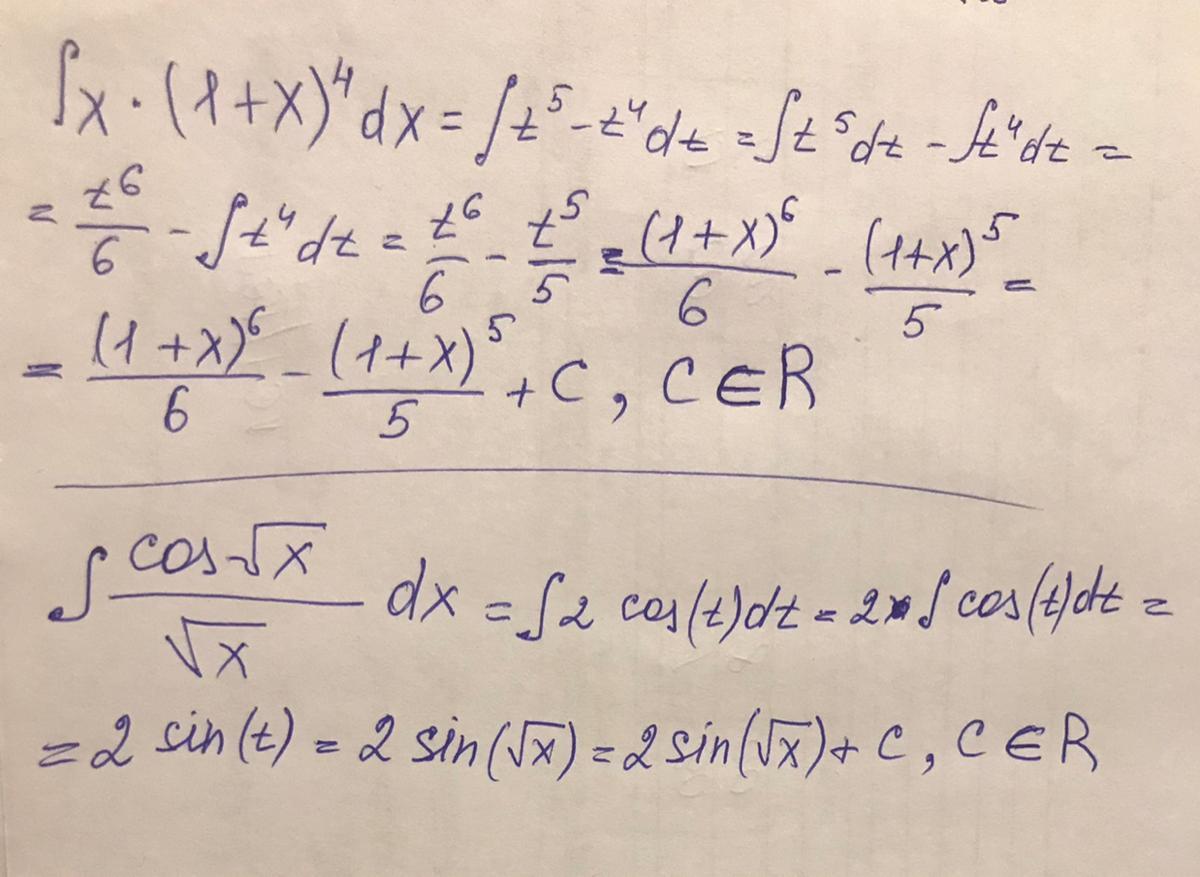 ∫x·(1+x)⁴dx = ∫t⁵-t⁴dt = ∫t⁵dt - ∫t⁴dt =
= t⁶/6 - ∫t⁴dt = t⁶/6 - t⁵/5 = (1+x)⁶/6 - (1+x)⁵/5 =
= (1+x)⁶/6 - (1+x)⁵/5 + C, C∈R
∫ cos√x/√x dx = ∫2 cos(t)dt = 2∫cos(t)dt =
= 2 sin(t) = 2 sin(√x) = 2 sin(√x) + C, C∈R